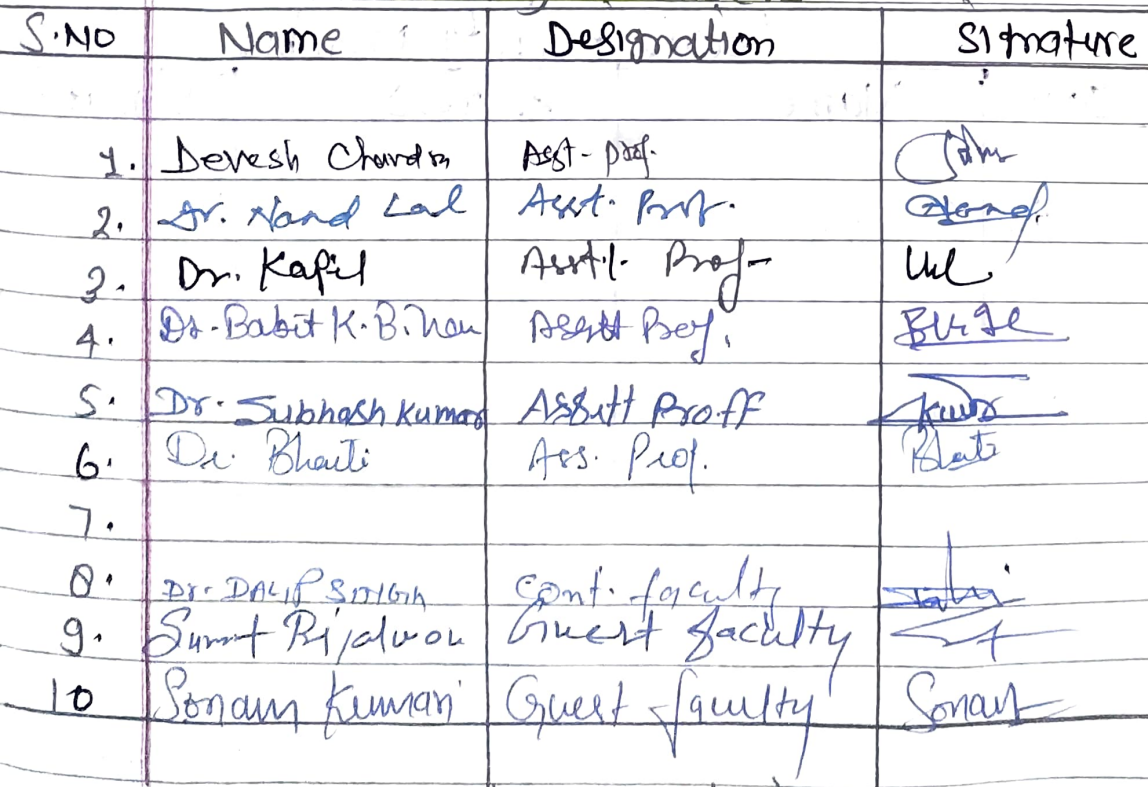 S.NO Name Designation Signature
1. Devesh Chandra Asst- prof.
2. Dr. Nand Lal Asst. Prof.
3. Dr. Kapil Asstt. Prof-
4. Dr. Babit K. Asstt Prof.
5. Dr. Subhash Kumar Asstt Proff
6. Dr. Bharti Ass. Prof. Bharti
7.
8. Dr. DALIP SINGH Cont. faculty
9. Sumit Rijalwan Guest faculty
10 Sonam Kumari Guest faculty Sonam